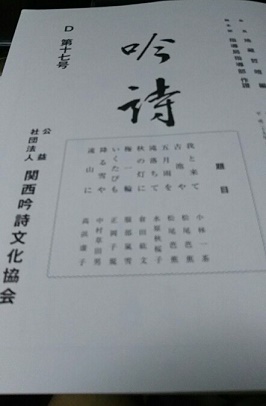 吟詩
D 第十七号
題目
我と来て 小林一茶
古池や 松尾芭蕉
五月雨を 松尾芭蕉
滝落ちて 水原秋桜子
秋の灯に
梅一輪 服部嵐雪
いくたびも 正岡子規
降る雪や 中村草田男
遠山に 高浜虚子
公益社団法人 関西吟詩文化協会